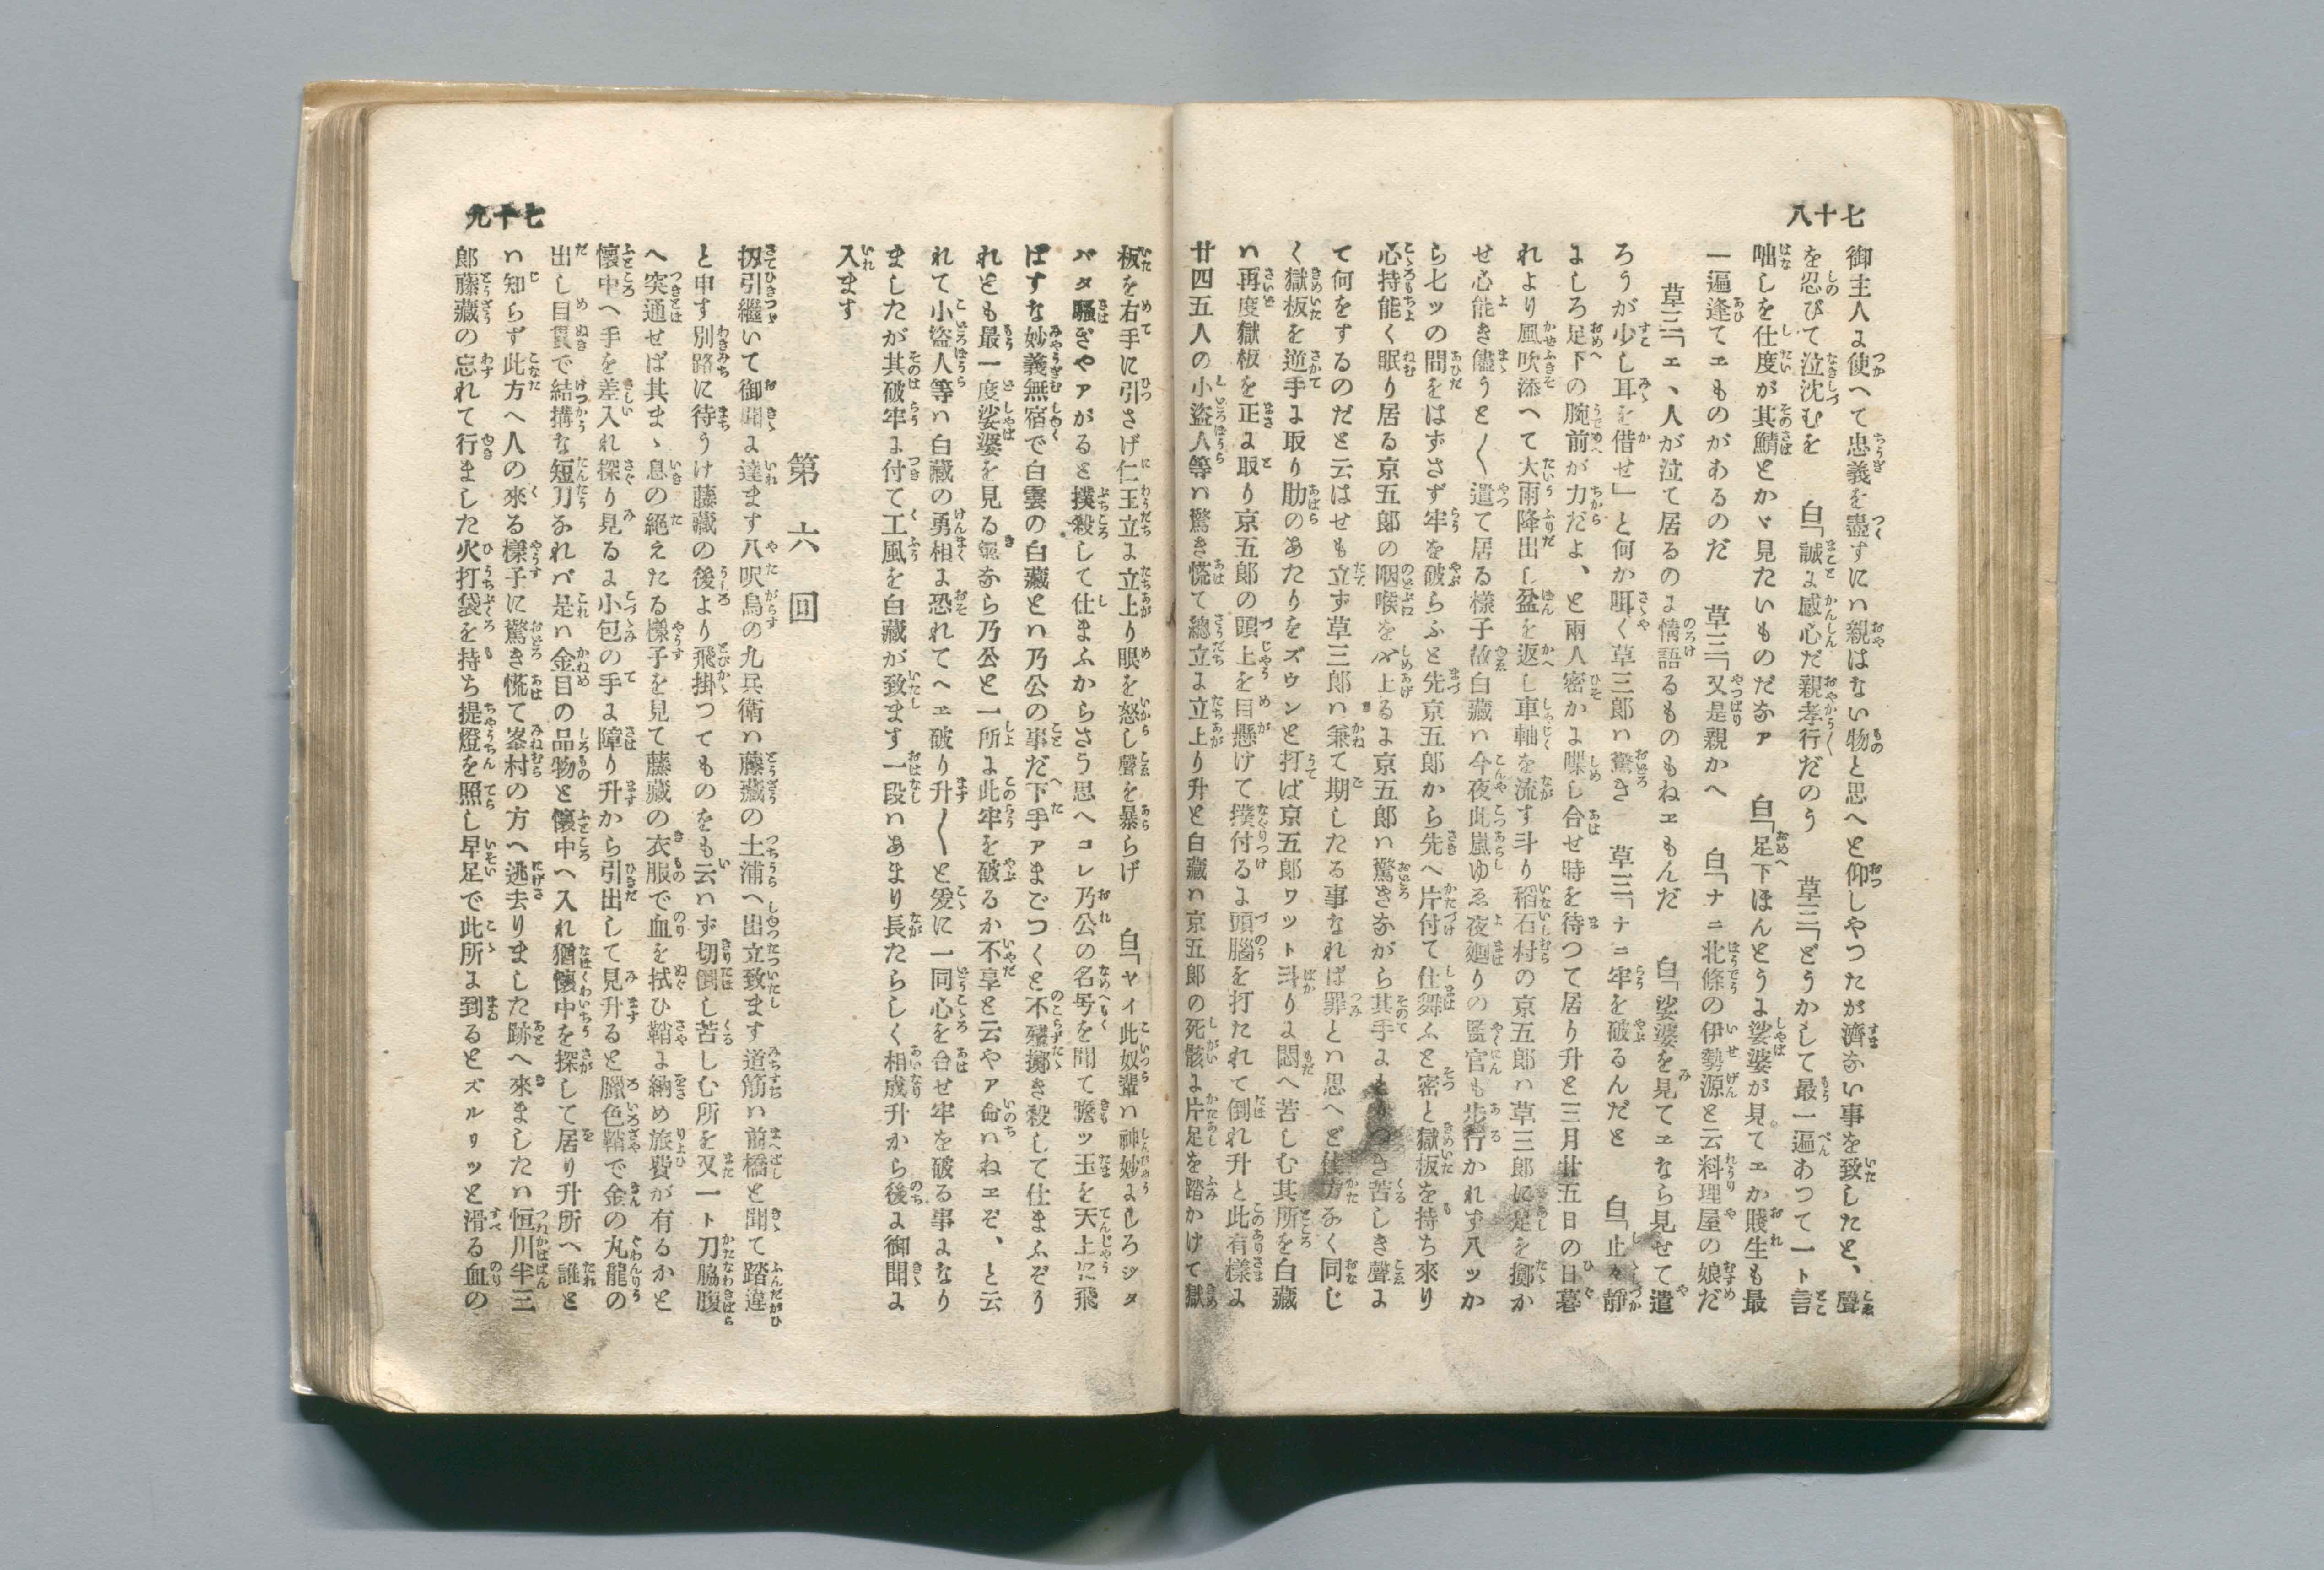 七十八
御主人よ使へて忠義を盡すにハ親はない物と思へと仰しやつたが濟ない事を致したと、聲
を忍びて泣沈むを　白「誠よ感心だ親孝行だのう　草三「どうかして最一遍あつて一ト言
咄しを仕度が其鯖とかヾ見たいものだなァ　白「足下ほんとうよ娑婆が見てヱか賤生も最
一遍逢てヱものがあるのだ　草三「又是親かへ　白「ナニ北條の伊勢源と云料理屋の娘だ
草三「ヱヽ人が泣て居るのよ情語るものもねヱもんだ　白「娑婆を見てヱなら見せて遣
ろうが少し耳を借せ」と何か咡く草三郎ハ驚き　草三「ナニ牢を破るんだと　白「止々靜
よしろ足下の腕前が力だよ、と兩人密かよ喋し合せ時を待つて居り升と三月廿五日の日暮
れより風吹添へて大雨降出し盆を返し車軸を流す斗り稻石村の京五郎ハ草三郎に足を擲か
せ心能き儘うと〱遣て居る樣子故白藏ハ今夜此嵐ゆゑ夜廻りの監官も歩行かれず八ッか
ら七ッの間をはずさず牢を破らふと先京五郎から先へ片付て仕舞ふと密と獄板を持ち來り
心持能く眠り居る京五郎の咽喉を〆上るよ京五郎ハ驚きながら其手よとりつき苦しき聲よ
て何をするのだと云はせも立ず草三郎ハ兼て期したる事なれば罪とハ思へど仕方なく同じ
く獄板を逆手よ取り肋のあたりをズウンと打ば京五郎ワット斗りよ悶へ苦しむ其所を白藏
ハ再度獄板を正よ取り京五郎の頭上を目懸けて撲付るよ頭腦を打たれて倒れ升と此有樣よ
廿四五人の小盜人等ハ驚き慌て總立よ立上り升と白藏ハ京五郎の死骸よ片足を踏かけて獄
七十九
板を右手に引さげ仁王立よ立上り眼を怒し聲を暴らげ　白「ヤイ此奴輩ハ神妙よしろジタ
バタ騷ぎやアがると撲殺して仕まふからさう思へコレ乃公の名号を聞て膽ッ玉を天上に飛
ばすな妙義無宿で白雲の白藏とハ乃公の事だ下手ァまごつくと不殘擲き殺して仕まふぞう
れとも最一度娑婆を見る氣なら乃公と一所よ此牢を破るか不享と云やァ命ハねヱぞ、と云
れて小盜人等ハ白藏の勇相よ恐れてヘヱ破り升〱と爰に一同心を合せ牢を破る事よなり
ましたが其破牢よ付て工風を白藏が致ます一段ハあまり長たらしく相成升から後よ御聞よ
入ます
第六回
扨引繼いて御聞よ達ます八咫烏の九兵衛ハ藤藏の土浦へ出立致ます道筋ハ前橋と聞て踏違
と申す別路に待うけ藤藏の後より飛掛つてものをも云ハず切倒し苦しむ所を又一ト刀脇腹
へ突通せば其まゝ息の絶えたる樣子を見て藤藏の衣服で血を拭ひ鞘よ納め旅費が有るかと
懷中へ手を差入れ探り見るよ小包の手よ障り升から引出して見升ると臘色鞘で金の丸龍の
出し目貫で結搆な短刀なれバ是ハ金目の品物と懷中へ入れ猶懷中を探して居り升所へ誰と
ハ知らず此方へ人の來る樣子に驚き慌て峯村の方へ逃去りました跡へ來ましたハ恒川半三
郎藤藏の忘れて行ました火打袋を持ち提燈を照し早足で此所よ到るとズルリッと滑る血の